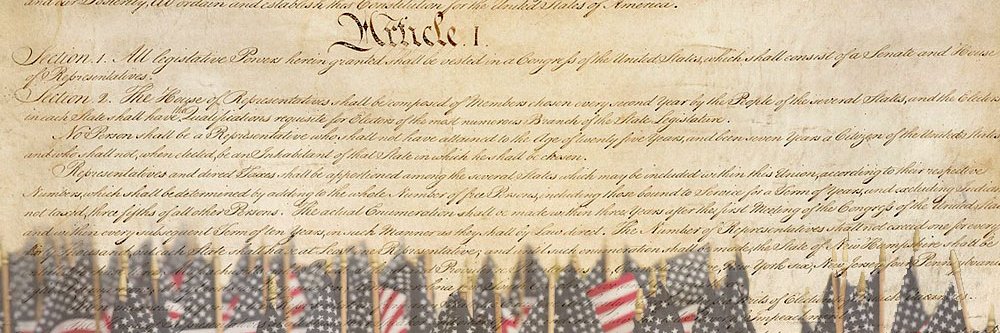 and our Posterity, do ordain and establish this Constitution for the United States of America.
Article. I.
Section. 1. All legislative Powers herein granted shall be vested in a Congress of the United States, which shall consist of a Senate and House
of Representatives.
Section. 2. The House of Representatives shall be composed of Members chosen every second Year by the People of the several States, and the Electors
in each State shall have the Qualifications requisite for Electors of the most numerous Branch of the State Legislature.
No Person shall be a Representative who shall not have attained to the Age of twenty five Years, and been seven Years a Citizen of the United States,
and who shall not, when elected, be an Inhabitant of that State in which he shall be chosen.
Representatives and direct Taxes shall be apportioned among the several States which may be included within this Union, according to their respective
Numbers, which shall be determined by adding to the whole Number of free Persons, including those bound to Service for a Term of Years, and excluding Indians
not taxed, three fifths of all other Persons. The actual Enumeration shall be made within three Years after the first Meeting of the Congress of the United States,
and within every subsequent Term of ten Years, in such Manner as they shall by Law direct. The Number of Representatives shall not exceed one for every
thirty Thousand, but each State shall have at Least one Representative; and until such enumeration shall be made, the State of New Hampshire shall be
New York six, New Jersey four, Pennsylvania
of Election
Impeachment